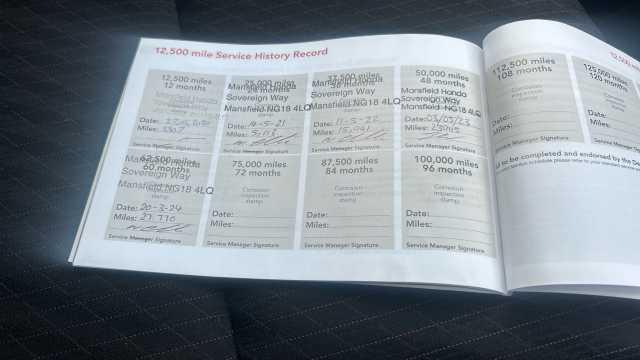 12,500 mile Service History Record
12,500 miles
12 months
Mansfield Honda
Sovereign Way
Mansfield NG18 4LQ
Date:
Miles:
Service Manager Signature
25,000 miles
24 months
Mansfield Honda
Sovereign Way
Mansfield NG18 4LQ
Date: 14-5-21
Miles:
Service Manager Signature
37,500 miles
36 months
Mansfield Honda
Sovereign Way
Mansfield NG18 4LQ
Date: 11-5-22
Miles: 15,041
Service Manager Signature
50,000 miles
48 months
Mansfield Honda
Sovereign Way
Mansfield NG18 4LQ
Date: 03/05/23
Miles:
Service Manager Signature
62,500 miles
60 months
Mansfield Honda
Sovereign Way
Mansfield NG18 4LQ
Date: 20-3-24
Miles: 27 770
Service Manager Signature
75,000 miles
72 months
Corrosion
inspection
stamp
Date:
Miles:
Service Manager Signature
87,500 miles
84 months
Corrosion
inspection
stamp
Date:
Miles:
Service Manager Signature
100,000 miles
96 months
Corrosion
inspection
stamp
Date:
Miles:
Service Manager Signature
12,500
112,500 miles
108 months
Corrosion
inspection
stamp
Date:
Miles:
Service Manager Signature
125,000 miles
120 months
Corrosion
inspection
stamp
Date:
Miles:
Service Manager Signature
to be completed and endorsed by the
please refer to your standard service